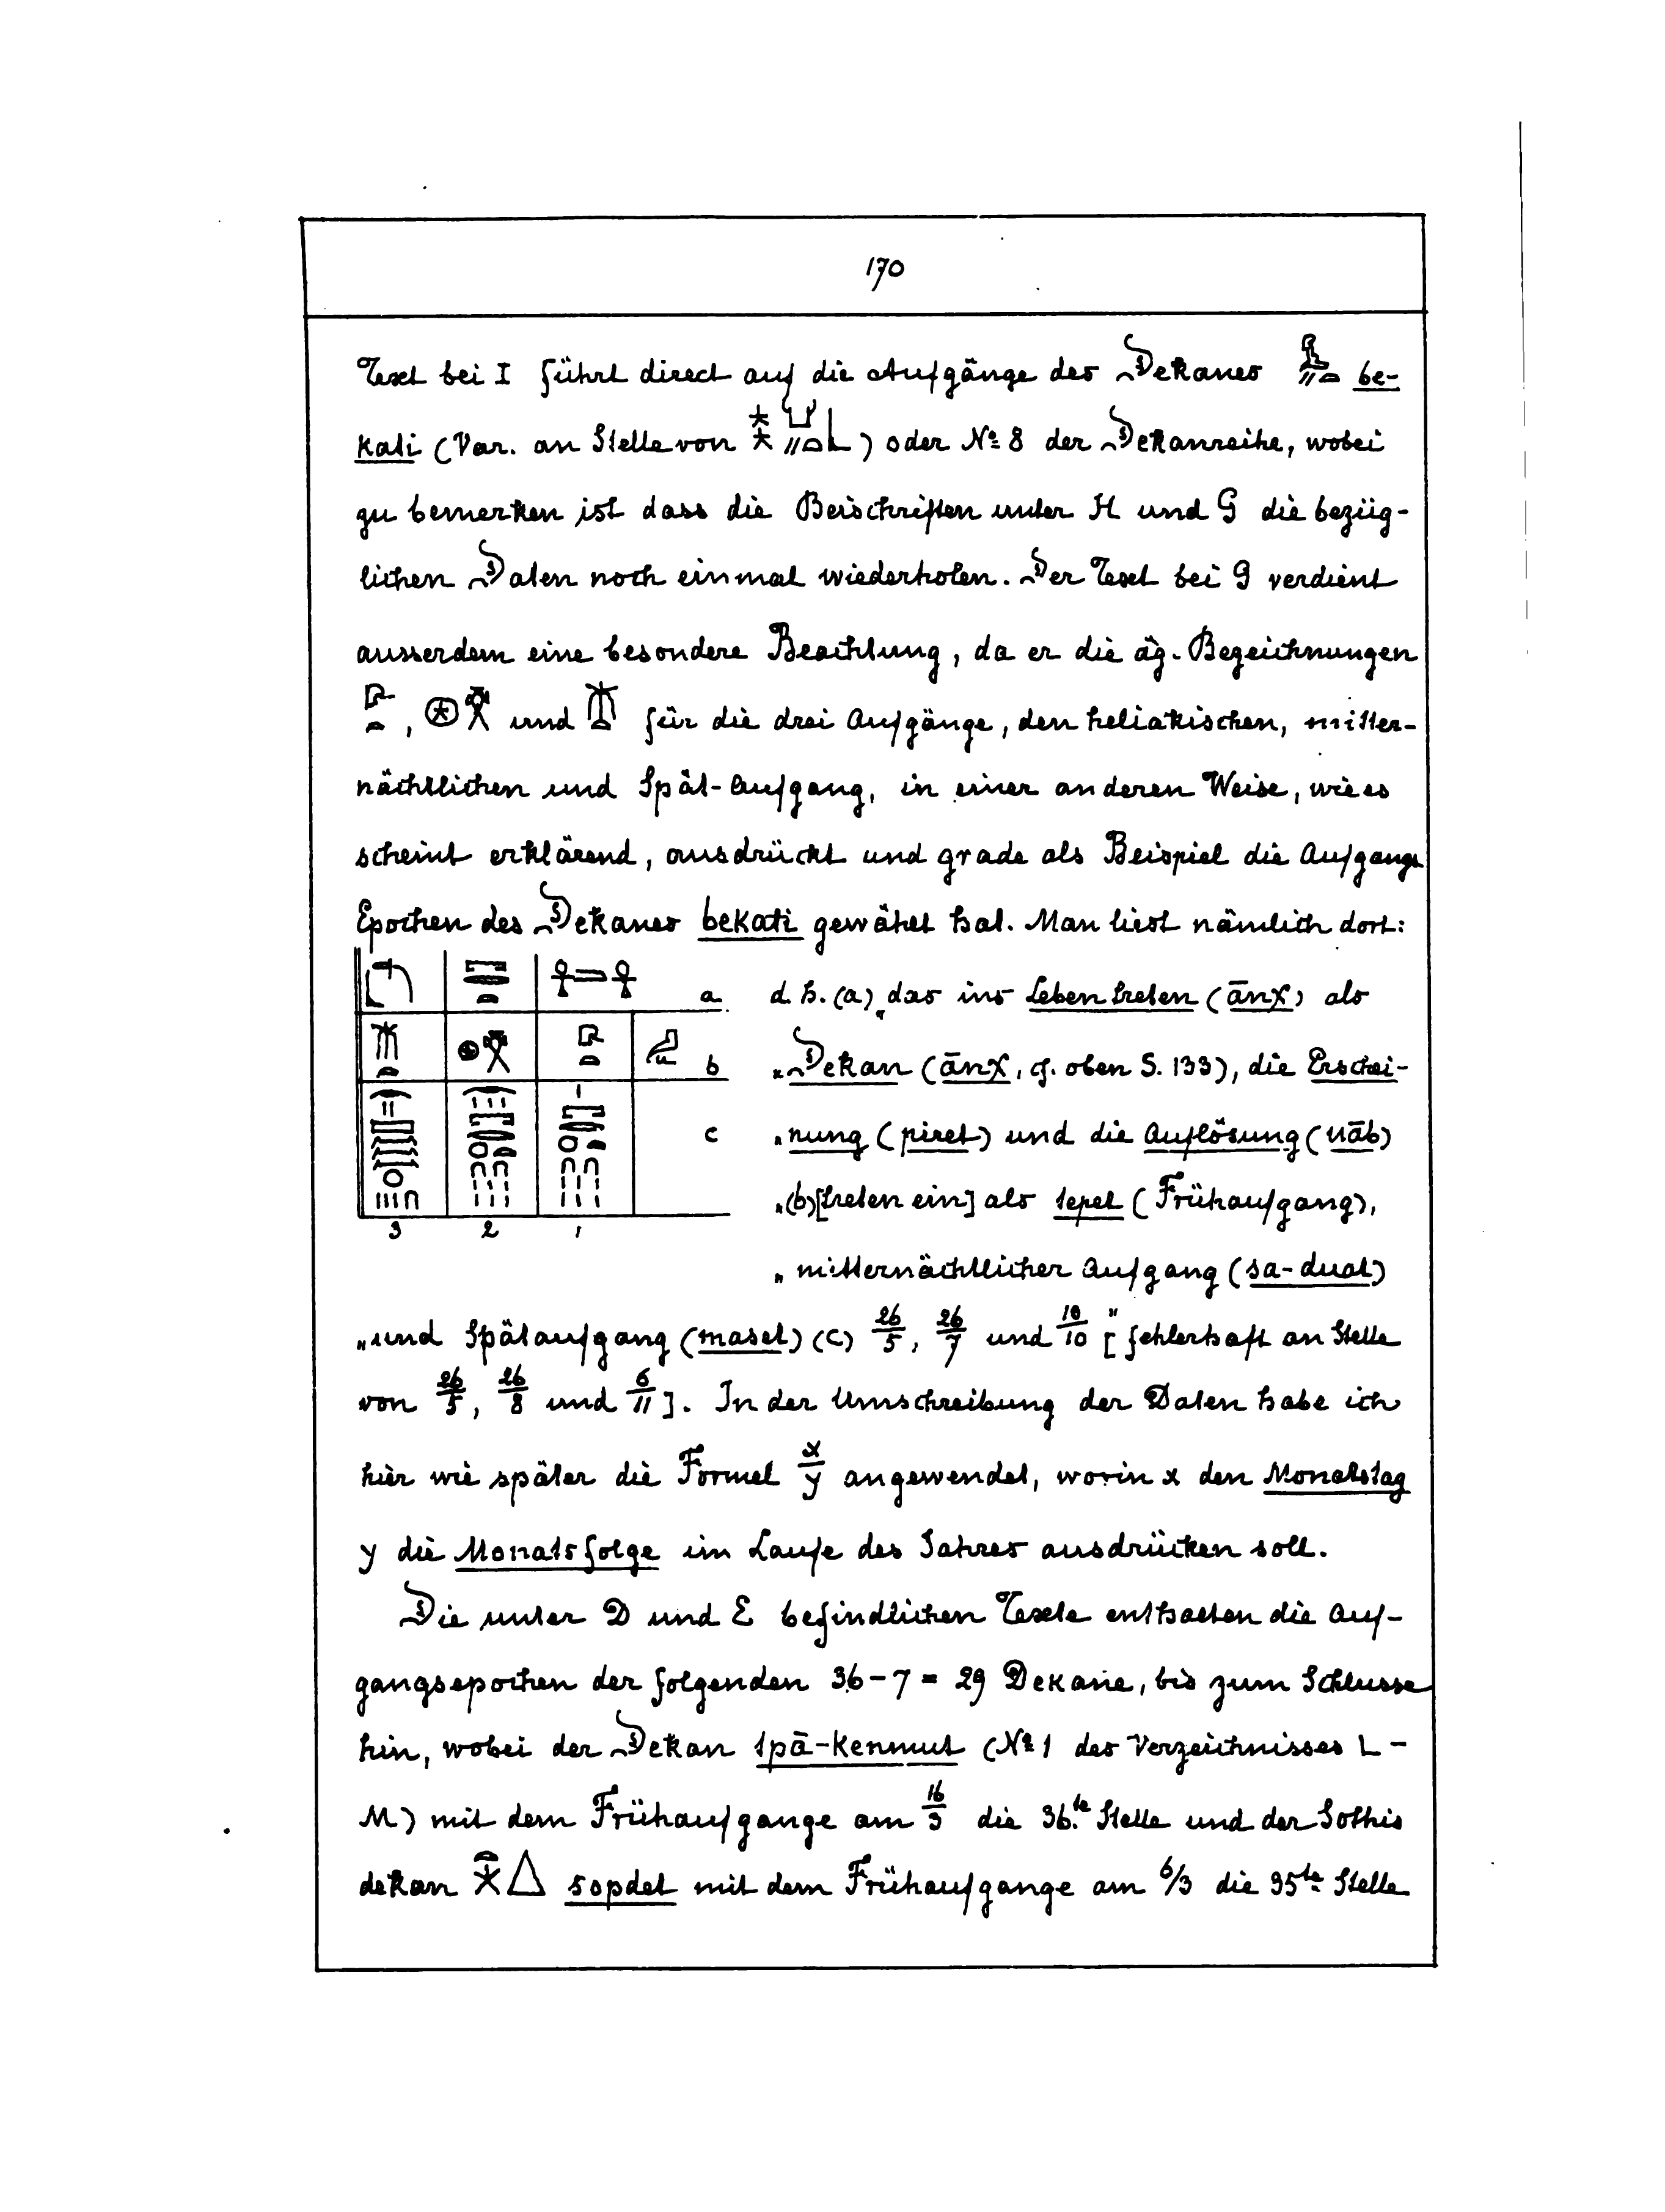 170
Text bei I führt direct auf die Aufgänge des Dekanes be-
kati (Var. an Stelle von ) oder № 8 der Dekanreihe, wobei
zu bemerken ist dass die Beischriften unter H und G die bezüg-
lichen Daten noch einmal wiederholen. Der Text bei G verdient
ausserdem eine besondere Beachtung, da er die äg. Bezeichnungen
, und für die drei Aufgänge, den heliakischen, mitter-
nächtlichen und Spät-Aufgang, in einer anderen Weise, wie es
scheint erklärend, ausdrückt und grade als Beispiel die Aufgangs
Epochen des Dekanes bekati gewählt hat. Man liest nämlich dort:
a d. h. (a) „das ins Leben treten (ānχ) als
b „Dekan (ānχ, cf. oben S. 133), die Erschei-
c „nung (piret) und die Auflösung (uāb)
„(b) [treten ein] als tepet (Frühaufgang),
3 2 1
„mitternächtlicher Aufgang (sa-duat)
„und Spätaufgang (maset) (c) 26/5, 26/7 und 18/10“ [fehlerhaft an Stelle
von 26/5, 26/8 und 6/11]. In der Umschreibung der Daten habe ich
hier wie später die Formel x/y angewendet, worin x den Monatstag
y die Monatsfolge im Laufe des Jahres ausdrücken soll.
Die unter D und E befindlichen Texte enthalten die Auf-
gangsepochen der folgenden 36-7 = 29 Dekane, bis zum Schlusse
hin, wobei der Dekan tpā-kenmut (№ 1 des Verzeichnisses L-
M) mit dem Frühaufgange am 16/3 die 36.te Stelle und der Sothis
dekan sopdet mit dem Frühaufgange am 6/3 die 35te Stelle